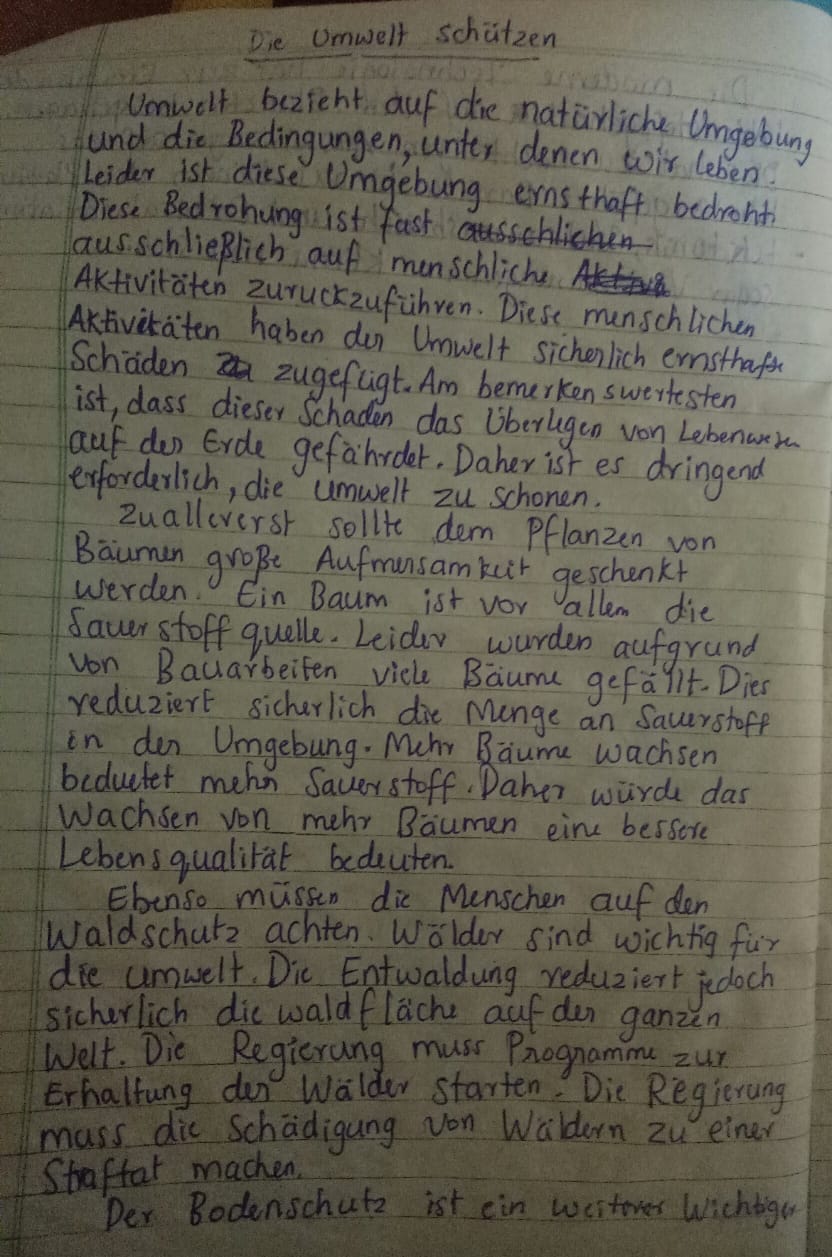 Die Umwelt schützen
Umwelt bezieht auf die natürliche Umgebung
und die Bedingungen, unter denen wir leben.
Leider ist diese Umgebung ernsthaft bedroht.
Diese Bedrohung ist fast ausschlichen
ausschließlich auf menschliche Aktiva
Aktivitäten zuruckzuführen. Diese menschlichen
Aktivitäten haben der Umwelt sicherlich ernsthafte
Schäden zu zugefügt. Am bemerkenswertesten
ist, dass dieser Schaden das Überlegen von Lebenwesen
auf der Erde gefährdet. Daher ist es dringend
erforderlich, die Umwelt zu schonen.
Zuallererst sollte dem Pflanzen von
Bäumen große Aufmersamkeit geschenkt
werden. Ein Baum ist vor allem die
Sauerstoffquelle. Leider wurden aufgrund
von Bauarbeiten viele Bäume gefällt. Dies
reduziert sicherlich die Menge an Sauerstoff
in der Umgebung. Mehr Bäume wachsen
beduetet mehr Sauerstoff. Daher würde das
Wachsen von mehr Bäumen eine bessere
Lebensqualität bedeuten.
Ebenso müssen die Menschen auf den
Waldschutz achten. Wälder sind wichtig für
die Umwelt. Die Entwaldung reduziert jedoch
sicherlich die Waldfläche auf der ganzen
Welt. Die Regierung muss Programme zur
Erhaltung der Wälder starten. Die Regierung
muss die Schädigung von Wäldern zu einer
Straftat machen.
Der Bodenschutz ist ein weiterer wichtiger